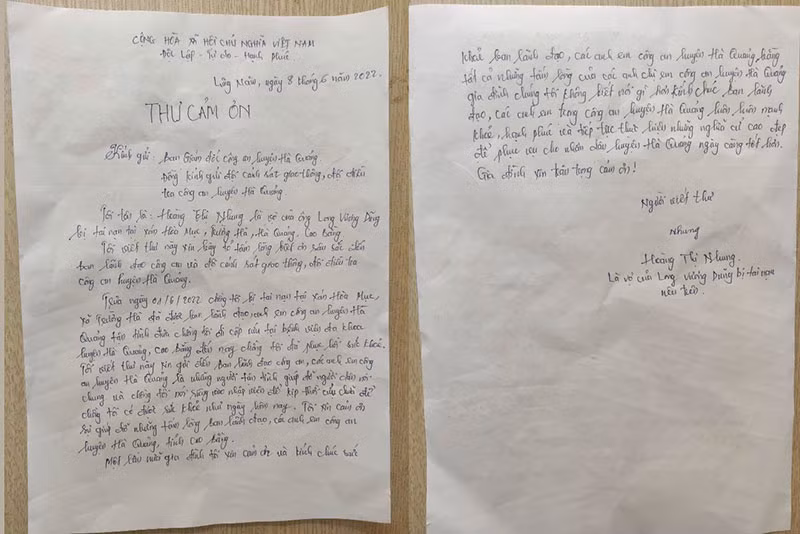 CỘNG HÒA XÃ HỘI CHỦ NGHĨA VIỆT NAM
Độc Lập - Tự do - Hạnh Phúc
Lũng Nặm, ngày 8 tháng 6 năm 2022.
THƯ CẢM ƠN
Kính gửi: Ban Giám đốc công an huyện Hà Quảng
Đồng kính gửi đội cảnh sát giao thông, đội điều
tra công an huyện Hà Quảng
Tôi tên là: Hoàng Thị Nhung là vợ của ông Long Vương Dũng
bị tai nạn tại xóm Hòa Mục, Trường Hà, Hà Quảng, Cao Bằng
Tôi viết thư này xin bày tỏ tấm lòng biết ơn sâu sắc đến
ban lãnh đạo công an và đội cảnh sát giao thông, đội điều tra
công an huyện Hà Quảng.
Trưa ngày 01/6/2022 chồng tôi bị tai nạn tại xóm Hòa Mục,
xã Trường Hà đã được ban lãnh đạo, anh em công an huyện Hà
Quảng tận tình đưa chồng tôi đi cấp cứu tại bệnh viện đa khoa
huyện Hà Quảng, Cao Bằng đến nay chồng tôi đã phục hồi sức khỏe.
Tôi viết thư này xin gửi đến ban lãnh đạo công an, các anh em công
an huyện Hà Quảng là những người tận tình giúp đỡ người dân nói
chung và chồng tôi nói riêng vào nhập viện để kịp thời cứu chữa để
chồng tôi có được sức khỏe như ngày hôm nay. Tôi xin cảm ơn
sự giúp đỡ những tấm lòng ban lãnh đạo, các anh em công an
huyện Hà Quảng, tỉnh Cao Bằng.
Một lần nữa gia đình tôi xin cảm ơn và kính chúc sức
khỏe ban lãnh đạo, các anh em công an huyện Hà Quảng, bằng
tất cả những tấm lòng của các anh chị em công an huyện Hà Quảng
gia đình chúng tôi không biết nói gì hơn kính chúc ban lãnh
đạo, các anh em trong công an huyện Hà Quảng luôn luôn mạnh
khỏe, hạnh phúc và tiếp tục thực hiện những nghĩa cử cao đẹp
để phục vụ cho nhân dân huyện Hà Quảng ngày càng tốt hơn.
Gia đình xin trân trọng cảm ơn!
Người viết thư
Nhung
Hoàng Thị Nhung.
Là vợ của Long Vương Dũng bị tai nạn
nêu trên.